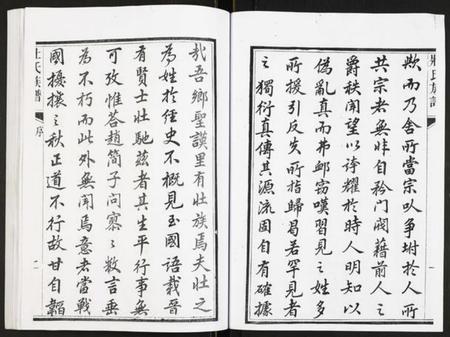 壯氏族譜
欺而乃舍所當宗以爭坿於人所
共宗者無非自矜門閥藉前人之
爵秩聞望以誇耀於時人明知以
偽亂真而弗卹竊嘆習見之姓多
所援引反失所指歸曷若罕見者
之獨衍真傳其源流固自有確據
哉吾鄉聖謨里有壯族焉夫壯之
為姓於經史不概見至國語載晉
有賢士壯馳茲者其生平行事無
可攷惟答趙簡子問寥寥數言垂
為不朽而此外無聞焉意者當戰
國擾攘之秋正道不行故甘自韜
壯氏族譜
序
二